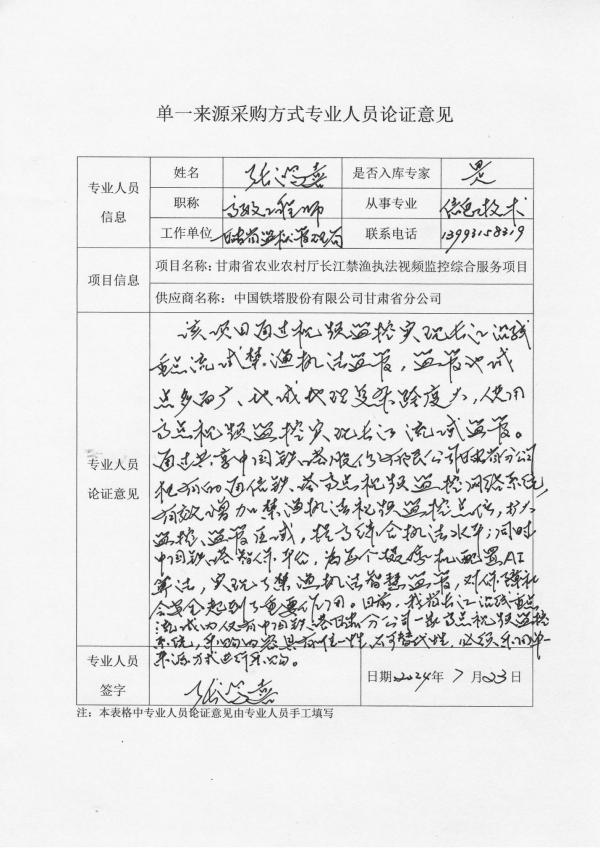 单一来源采购方式专业人员论证意见
专业人员信息
姓名 张 嘉 是否入库专家 是
职称 高级工程师 从事专业 信息技术
工作单位 甘肃省 联系电话 13993158319
项目信息
项目名称：甘肃省农业农村厅长江禁渔执法视频监控综合服务项目
供应商名称：中国铁塔股份有限公司甘肃省分公司
专业人员论证意见
该项目通过视频监控实现长江沿线
重点流域禁渔执法监管，监管地域
点多面广、地域地理复杂跨度大，使用
高点视频监控实现长江流域监管。
通过共享中国铁塔股份有限公司甘肃省分公司
现有的通信铁塔高点视频监控网络系统，
有效增加禁渔执法视频监控点位，扩大
监控、监管区域，提高综合执法水平；同时
中国铁塔 平台，为每个摄像机配置AI
算法，实现了禁渔执法智慧监管，对 社
会安全起到了重要作用。目前，我省长江沿线重点
流域内仅有中国铁塔甘肃分公司一家高点视频监控
系统，采购内容具有唯一性、不可替代性，必须采用单一
来源方式进行采购。
专业人员签字
张 嘉
日期2024年7月23日
注：本表格中专业人员论证意见由专业人员手工填写